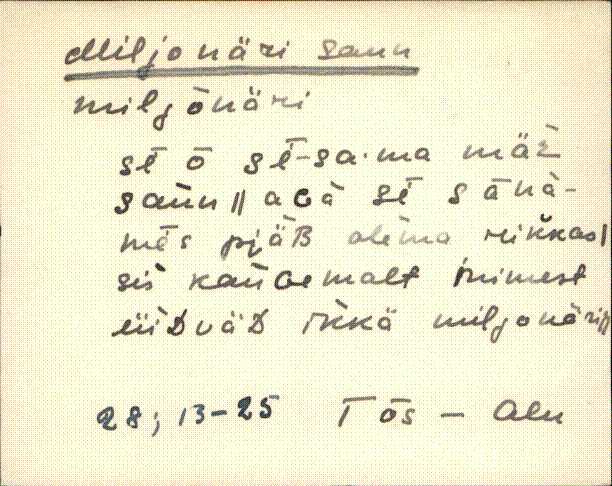 Miljonäri saun
miljōnäri
sē̬ ō sē-sa·ma mäz
saùn || aGà sē sānà-
mēs pjäB olèma rikkas|
sis kaùGemalt inimest
üiDväD ikkä miljonäri||
28; 13-25 Tõs - Alu